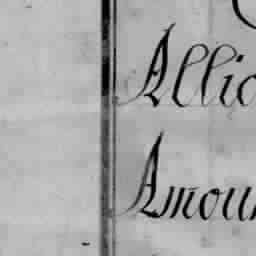 Allic
Amoun